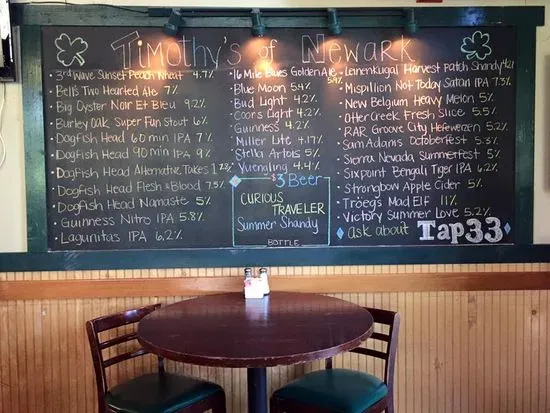 Timothy's of Newark
3rd Wave Sunset Peach Wheat 4.7%
Bell's Two Hearted Ale 7%
Big Oyster Noir Et Bleu 9.2%
Burley Oak Super Fun Stout 6%
Dogfish Head 60 min 7%
Dogfish Head 90 min 9%
Dogfish Head Alternative Takes 1
Dogfish Head Flesh & Blood 7.5%
Dogfish Head Namaste 5%
Guinness Nitro IPA 5.8%
Lagunitas IPA 6.2%
16 Mile Blues Golden Ale
Blue Moon 5.4%
Bud Light 4.2%
Coors Light 4.2%
Guinness 4.2%
Miller Lite 4.17%
Stella Artois 5%
Yuengling 4.4%
$3 Beer
Curious
Traveler
Summer Shandy
Bottle
Leinenkugal Harvest Patch Shandy 4.2%
Mispillion Not Today Satan IPA 7.3%
New Belgium Heavy Melon 5%
Otter Creek Fresh Slice 5.5%
RAR Groove City Hefeweizen 5.2%
Sam Adams Octoberfest 5.3%
Sierra Nevada Summerfest 5%
Sixpoint Bengali Tiger IPA 6.2%
Strongbow Apple Cider 5%
Tröegs Mad Elf 11%
Victory Summer Love 5.2%
ask about Tap33